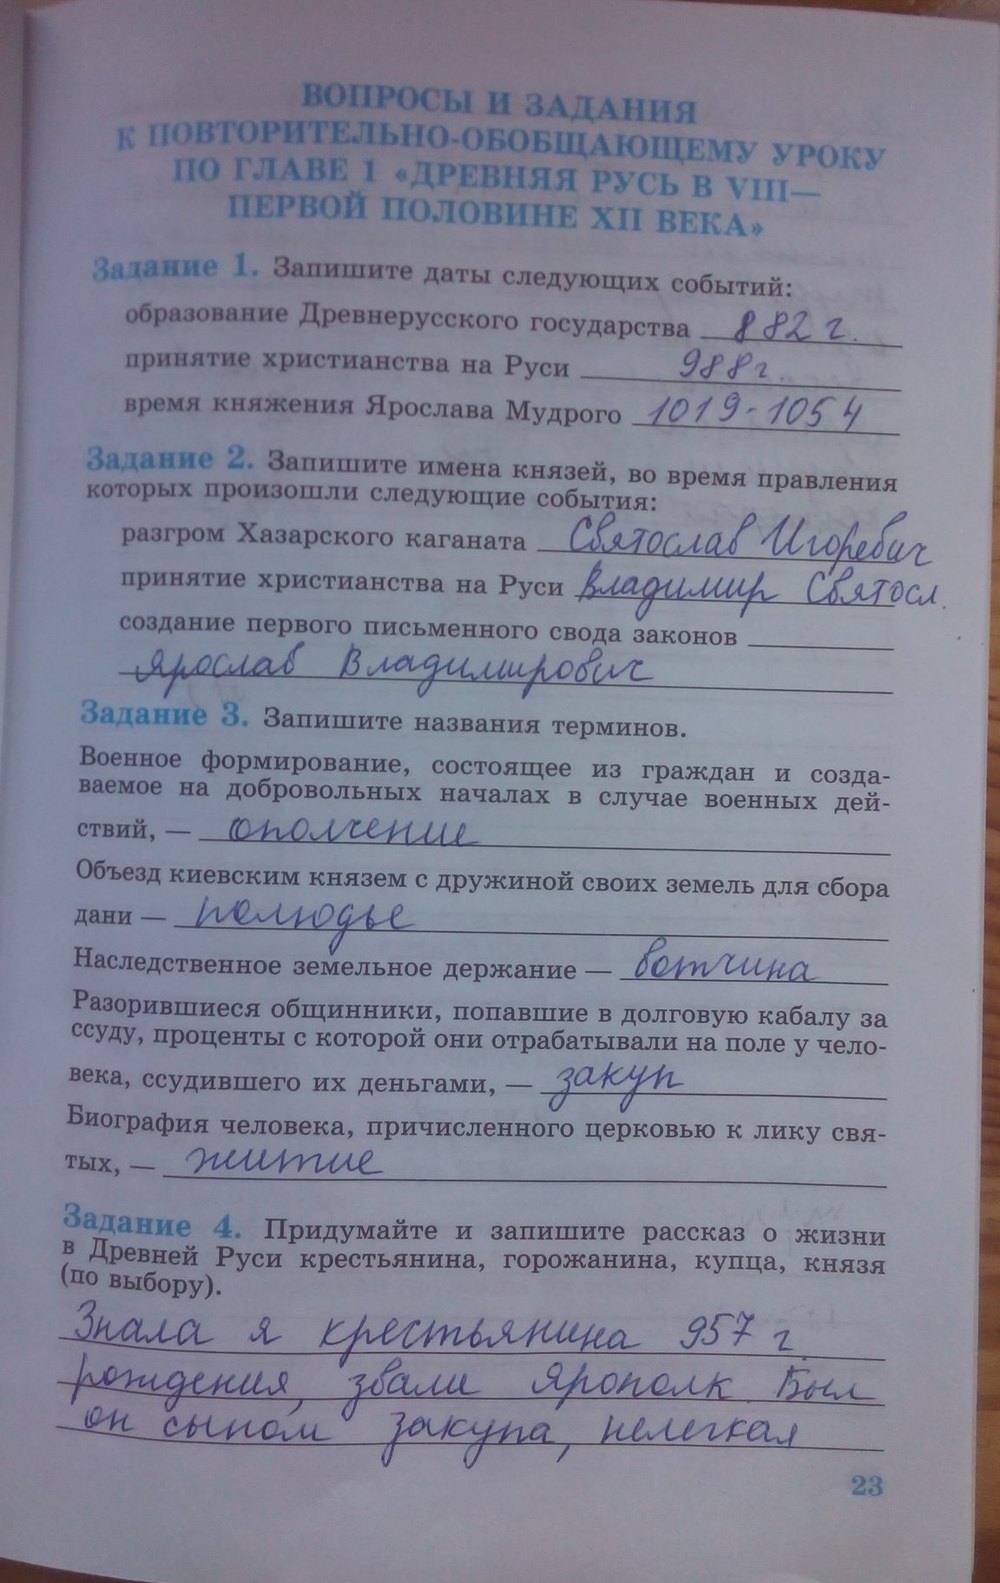 ВОПРОСЫ И ЗАДАНИЯ
К ПОВТОРИТЕЛЬНО-ОБОБЩАЮЩЕМУ УРОКУ
ПО ГЛАВЕ 1 «ДРЕВНЯЯ РУСЬ В VIII—
ПЕРВОЙ ПОЛОВИНЕ XII ВЕКА»
Задание 1. Запишите даты следующих событий:
образование Древнерусского государства 882 г.
принятие христианства на Руси 988 г.
время княжения Ярослава Мудрого 1019-1054
Задание 2. Запишите имена князей, во время правления
которых произошли следующие события:
разгром Хазарского каганата Святослав Игоревич
принятие христианства на Руси Владимир Святосл.
создание первого письменного свода законов
Ярослав Владимирович
Задание 3. Запишите названия терминов.
Военное формирование, состоящее из граждан и созда-
ваемое на добровольных началах в случае военных дей-
ствий, — ополчение
Объезд киевским князем с дружиной своих земель для сбора
дани — полюдье
Наследственное земельное держание — вотчина
Разорившиеся общинники, попавшие в долговую кабалу за
ссуду, проценты с которой они отрабатывали на поле у чело-
века, ссудившего их деньгами, — закуп
Биография человека, причисленного церковью к лику свя-
тых, — житие
Задание 4. Придумайте и запишите рассказ о жизни
в Древней Руси крестьянина, горожанина, купца, князя
(по выбору).
Знала я крестьянина 957 г.
рождения, звали Ярополк. Был
он сыном закупа, нелегкая
23